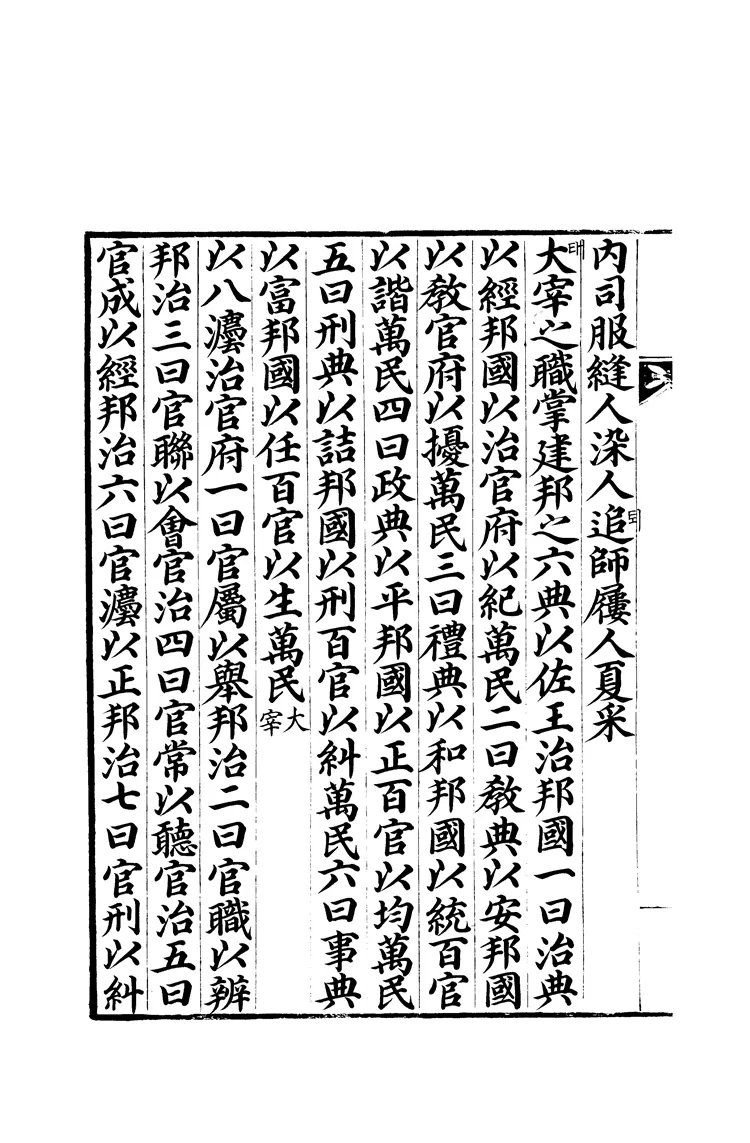 內司服縫人染人追퇴師屨人夏采
大태宰之職掌建邦之六典以佐王治邦國一曰治典
以經邦國以治官府以紀萬民二曰敎典以安邦國
以敎官府以擾萬民三曰禮典以和邦國以統百官
以諧萬民四曰政典以平邦國以正百官以均萬民
五曰刑典以詰邦國以刑百官以糾萬民六曰事典
以富邦國以任百官以生萬民大宰
以八灋治官府一曰官屬以舉邦治二曰官職以辨
邦治三曰官聯以會官治四曰官常以聽官治五曰
官成以經邦治六曰官灋以正邦治七曰官刑以糾